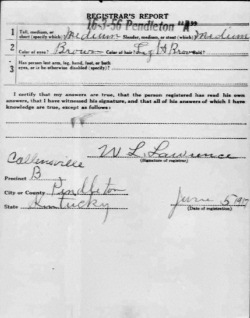 REGISTRAR'S REPORT
16-3-56 Pendleton "A"
1 Tall, medium, or short (specify which) Medium Slender, medium, or stout (which) Medium
2 Color of eyes Brown Color of hair Light Brown Bald
3 Has person lost arm, leg, hand, foot, or both eyes, or is he otherwise disabled (specify)?
I certify that my answers are true, that the person registered has read his own answers, that I have witnessed his signature, and that all of his answers of which I have knowledge are true, except as follows:
W L Lawrence
(Signature of registrar)
Precinct B
City or County Pendleton
State Kentucky
June 5
(Date of registration)